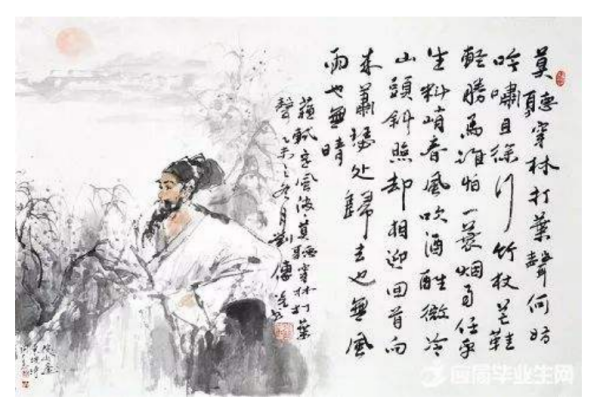 莫聽穿林打葉聲何妨
吟嘯且徐行竹杖芒鞋
輕勝馬誰怕一蓑烟雨任平
生料峭春風吹酒醒微冷
山頭斜照却相迎回首向
來蕭瑟處歸去也無風
雨也無晴
蘇軾定風波莫聽穿林打葉
聲乙未之冬月劉傳
应届毕业生网